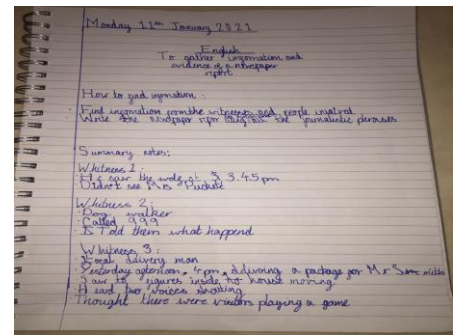 Monday 11th January 2021
English
To gather information and
evidence of a newspaper
report
How to find information:
Find information from the witnesses and people involved
Write the newspaper using the journalistic phrases
Summary notes:
Whitness 1:
He saw the wolf at 3.45pm
Didn't see Mrs
Whitness 2:
Dog walker
Called 999
Told them what happend
Whitness 3:
Local delivery man
Yesterday afternoon, 4pm, delivering a package for Mr
Saw figures inside house moving
Heard two voices shouting
Thought there were visitors playing a game